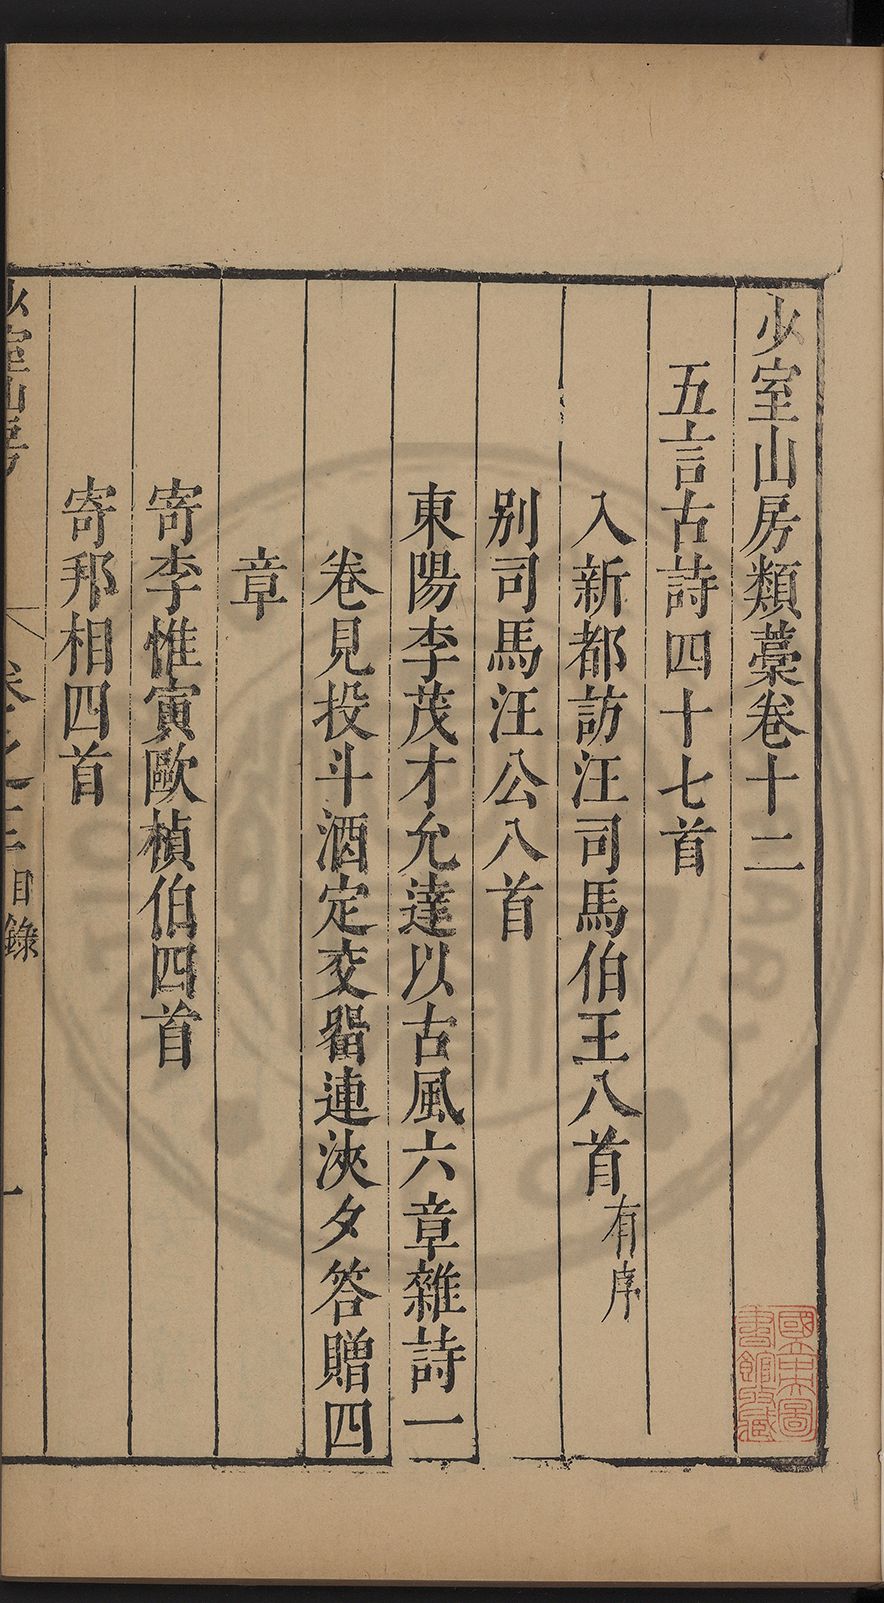 少室山房類藁卷十二
五言古詩四十七首
入新都訪汪司馬伯玉八首有序
別司馬汪公八首
東陽李茂才允達以古風六章雜詩一
卷見投斗酒定交畱連浹夕答贈四
章
寄李惟寅歐楨伯四首
寄邦相四首
少室山房
目錄
一
國立中央圖
書館收藏